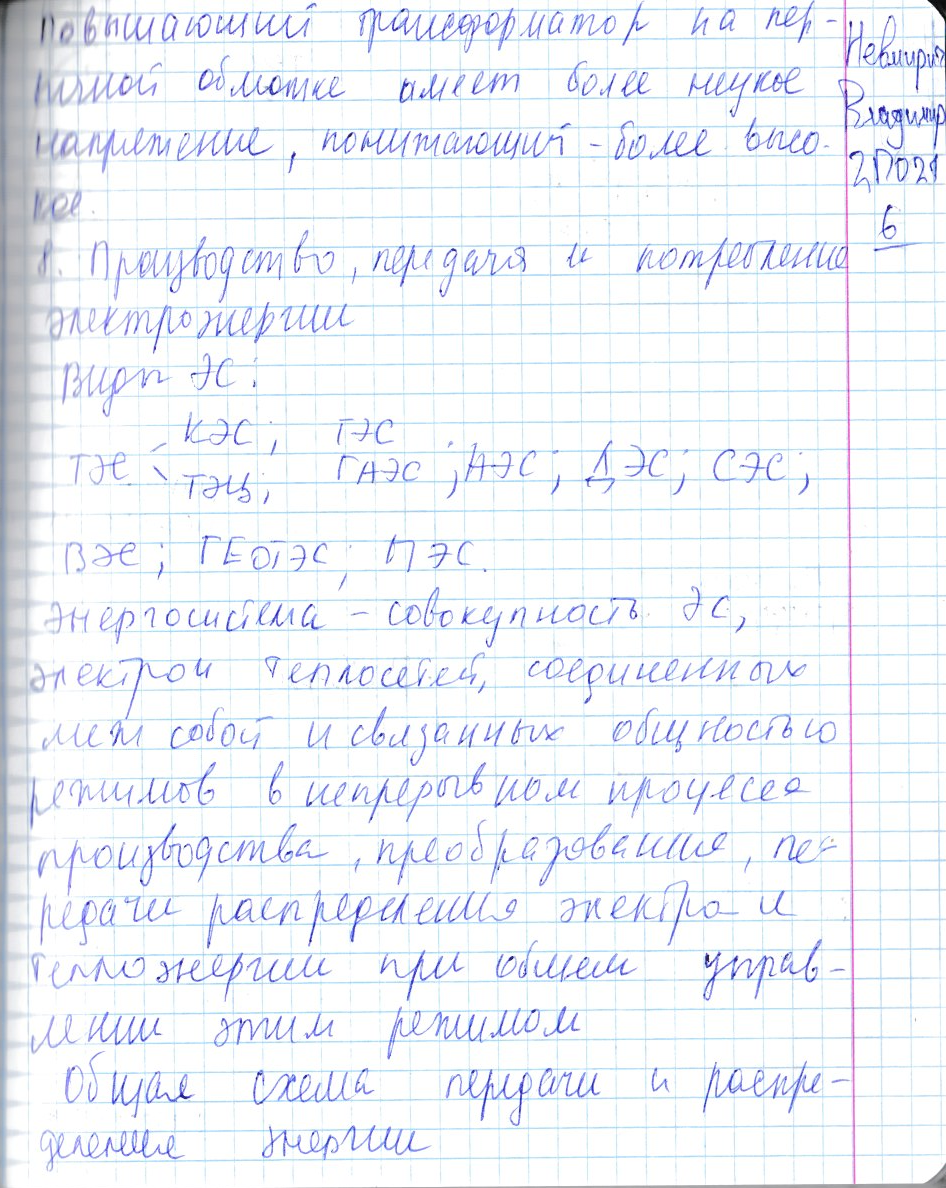 Повышающий трансформатор на пер-
вичной обмотке имеет более низкое
напряжение, понижающий - более высо-
кое.
8. Производство, передача и потребление
электроэнергии
Виды ЭС:
КЭС; ТЭС
ТЭС ТЭЦ; ГАЭС; АЭС; ДЭС; СЭС;
ВЭС; ГЕОТЭС; ПЭС.
Энергосистема – совокупность ЭС,
электро и теплосетей, соединенных
меж собой и связанных общностью
режимов в непрерывном процессе
производства, преобразования, пе-
редачи распределения электро и
теплоэнергии при общем управ-
лении этим режимом
Общая схема передачи и распре-
деления энергии
Владимир
2ПО21
6